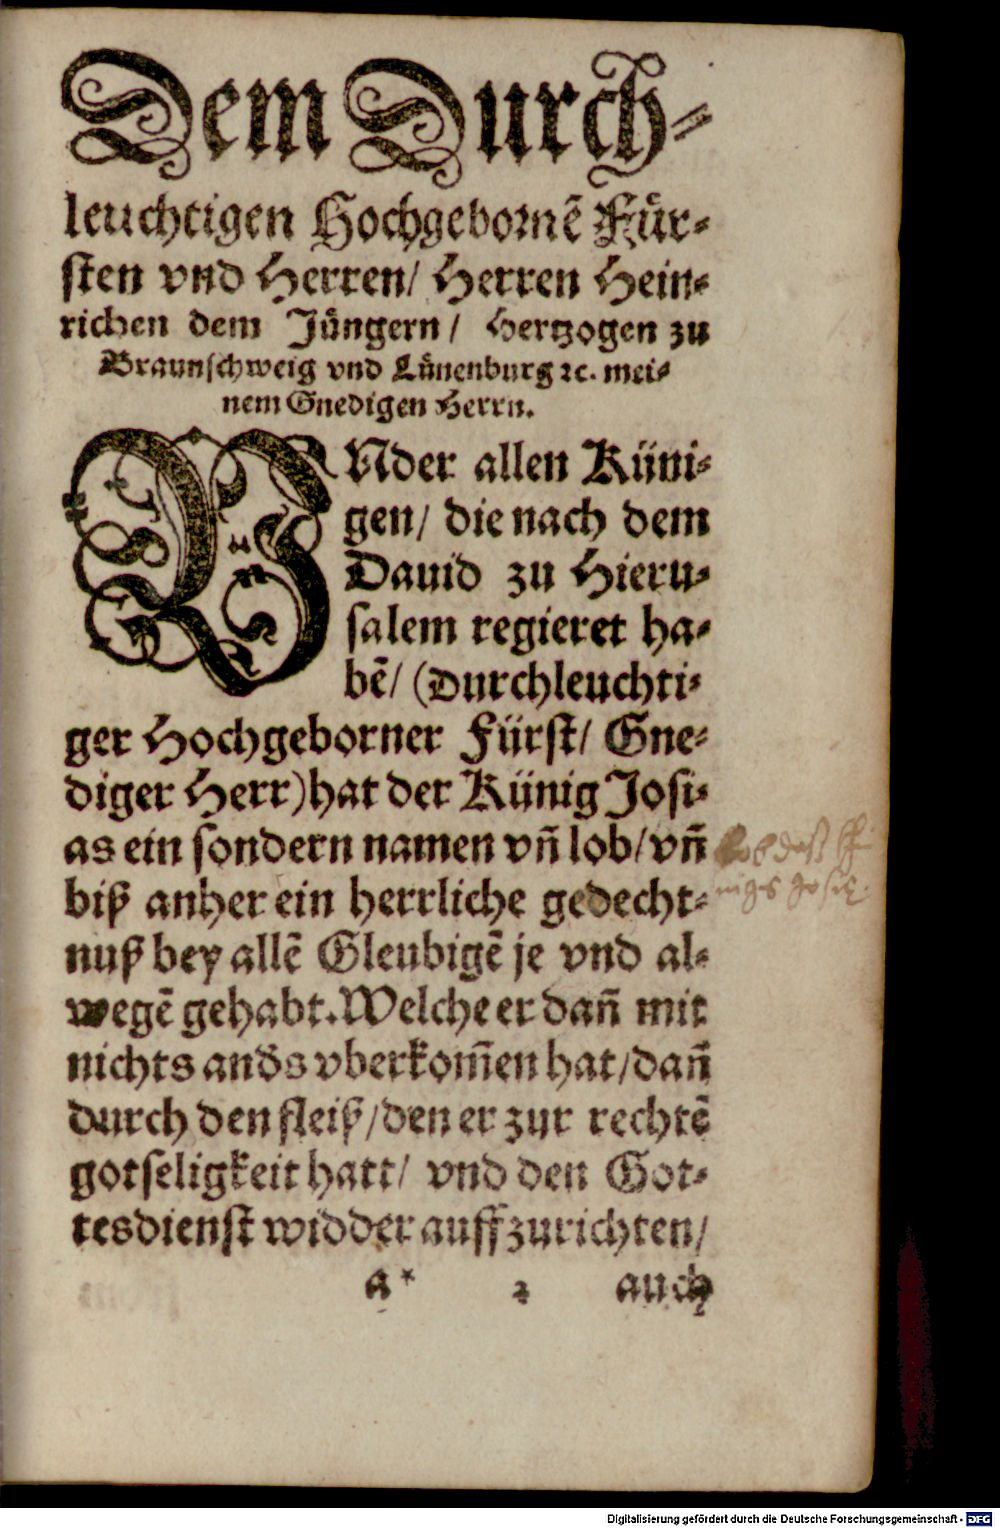 Dem Durch-
leuchtigen Hochgebornē Für-
sten vnd Herren/ Herren Hein-
richen dem Jüngern/ Hertzogen zu
Braunschweig vnd Lünenburg ꝛc. mei-
nem Gnedigen Herrn.
VNder allen Küni-
gen/ die nach dem
Dauid zu Hieru-
salem regieret ha-
bē/ (Durchleuchti-
ger Hochgeborner Fürst/ Gne-
diger Herr) hat der Künig Josi-
as ein sondern namen vñ lob/ vñ
biß anher ein herrliche gedecht-
nuß bey allē Gleubigē je vnd al-
wegē gehabt. Welche er dañ mit
nichts anďs vberkom̄en hat/ dañ
durch den fleiß/ den er zur rechtē
gotseligkeit hatt/ vnd den Got-
tesdienst widder auffzurichten/
a* 2 auch
Digitalisierung gefördert durch die Deutsche Forschungsgemeinschaft - DFG